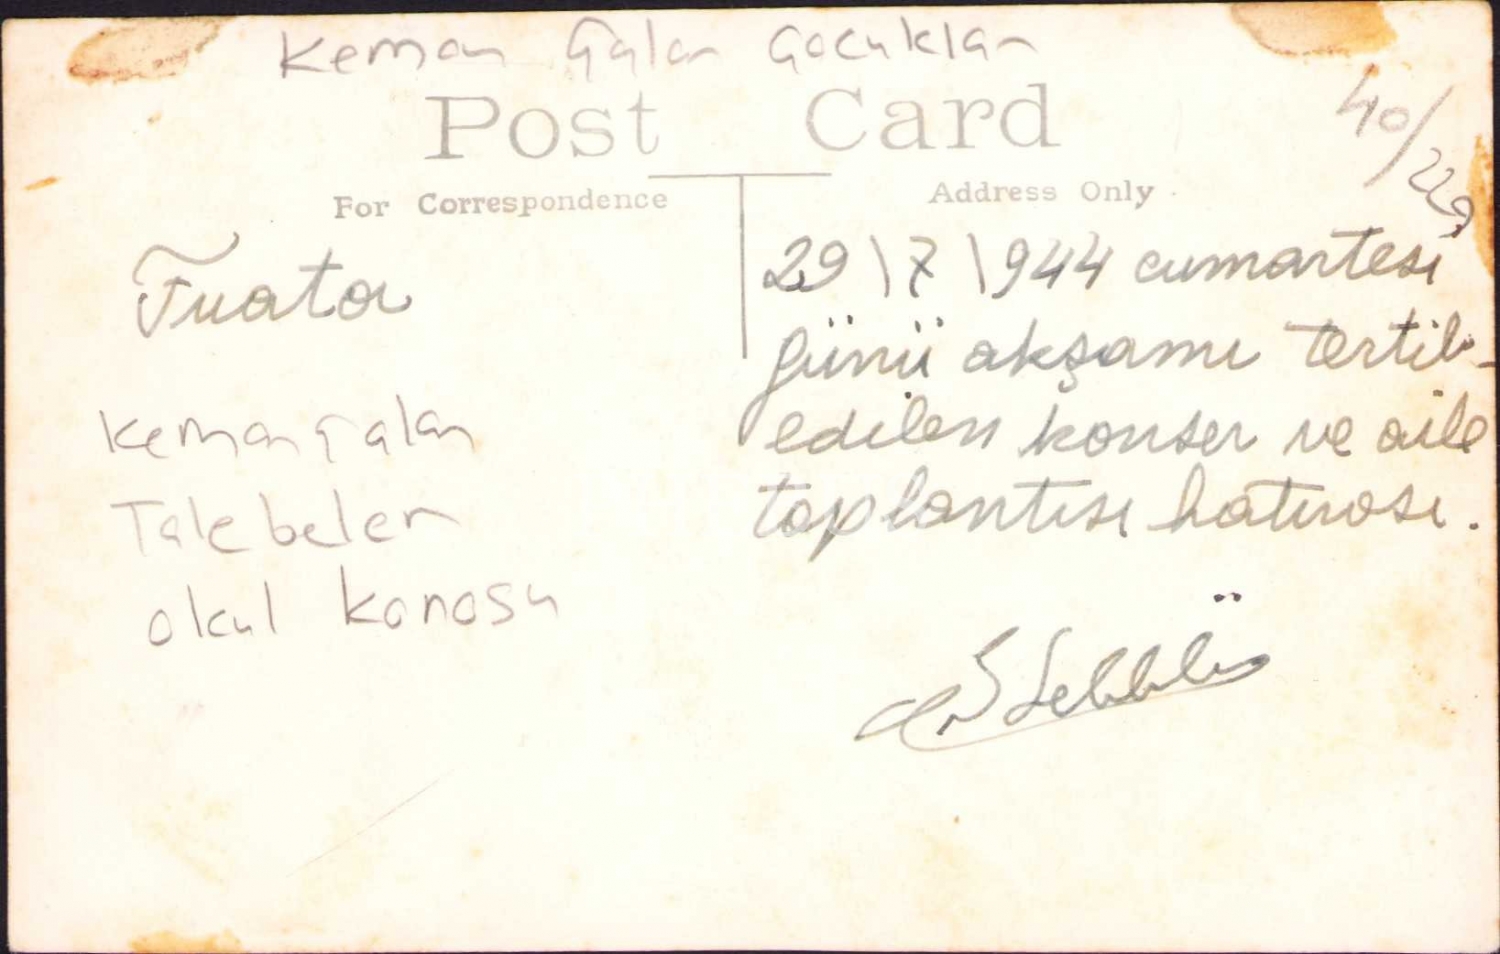 Keman Çalan Çocuklar
Post Card
40/229
For Correspondence
Address Only
Fuata
29\7\944 cumartesi
günü akşamı tertib
edilen konser ve aile
toplantısı hatırası.
Keman çalan
Talebeler
okul konosu